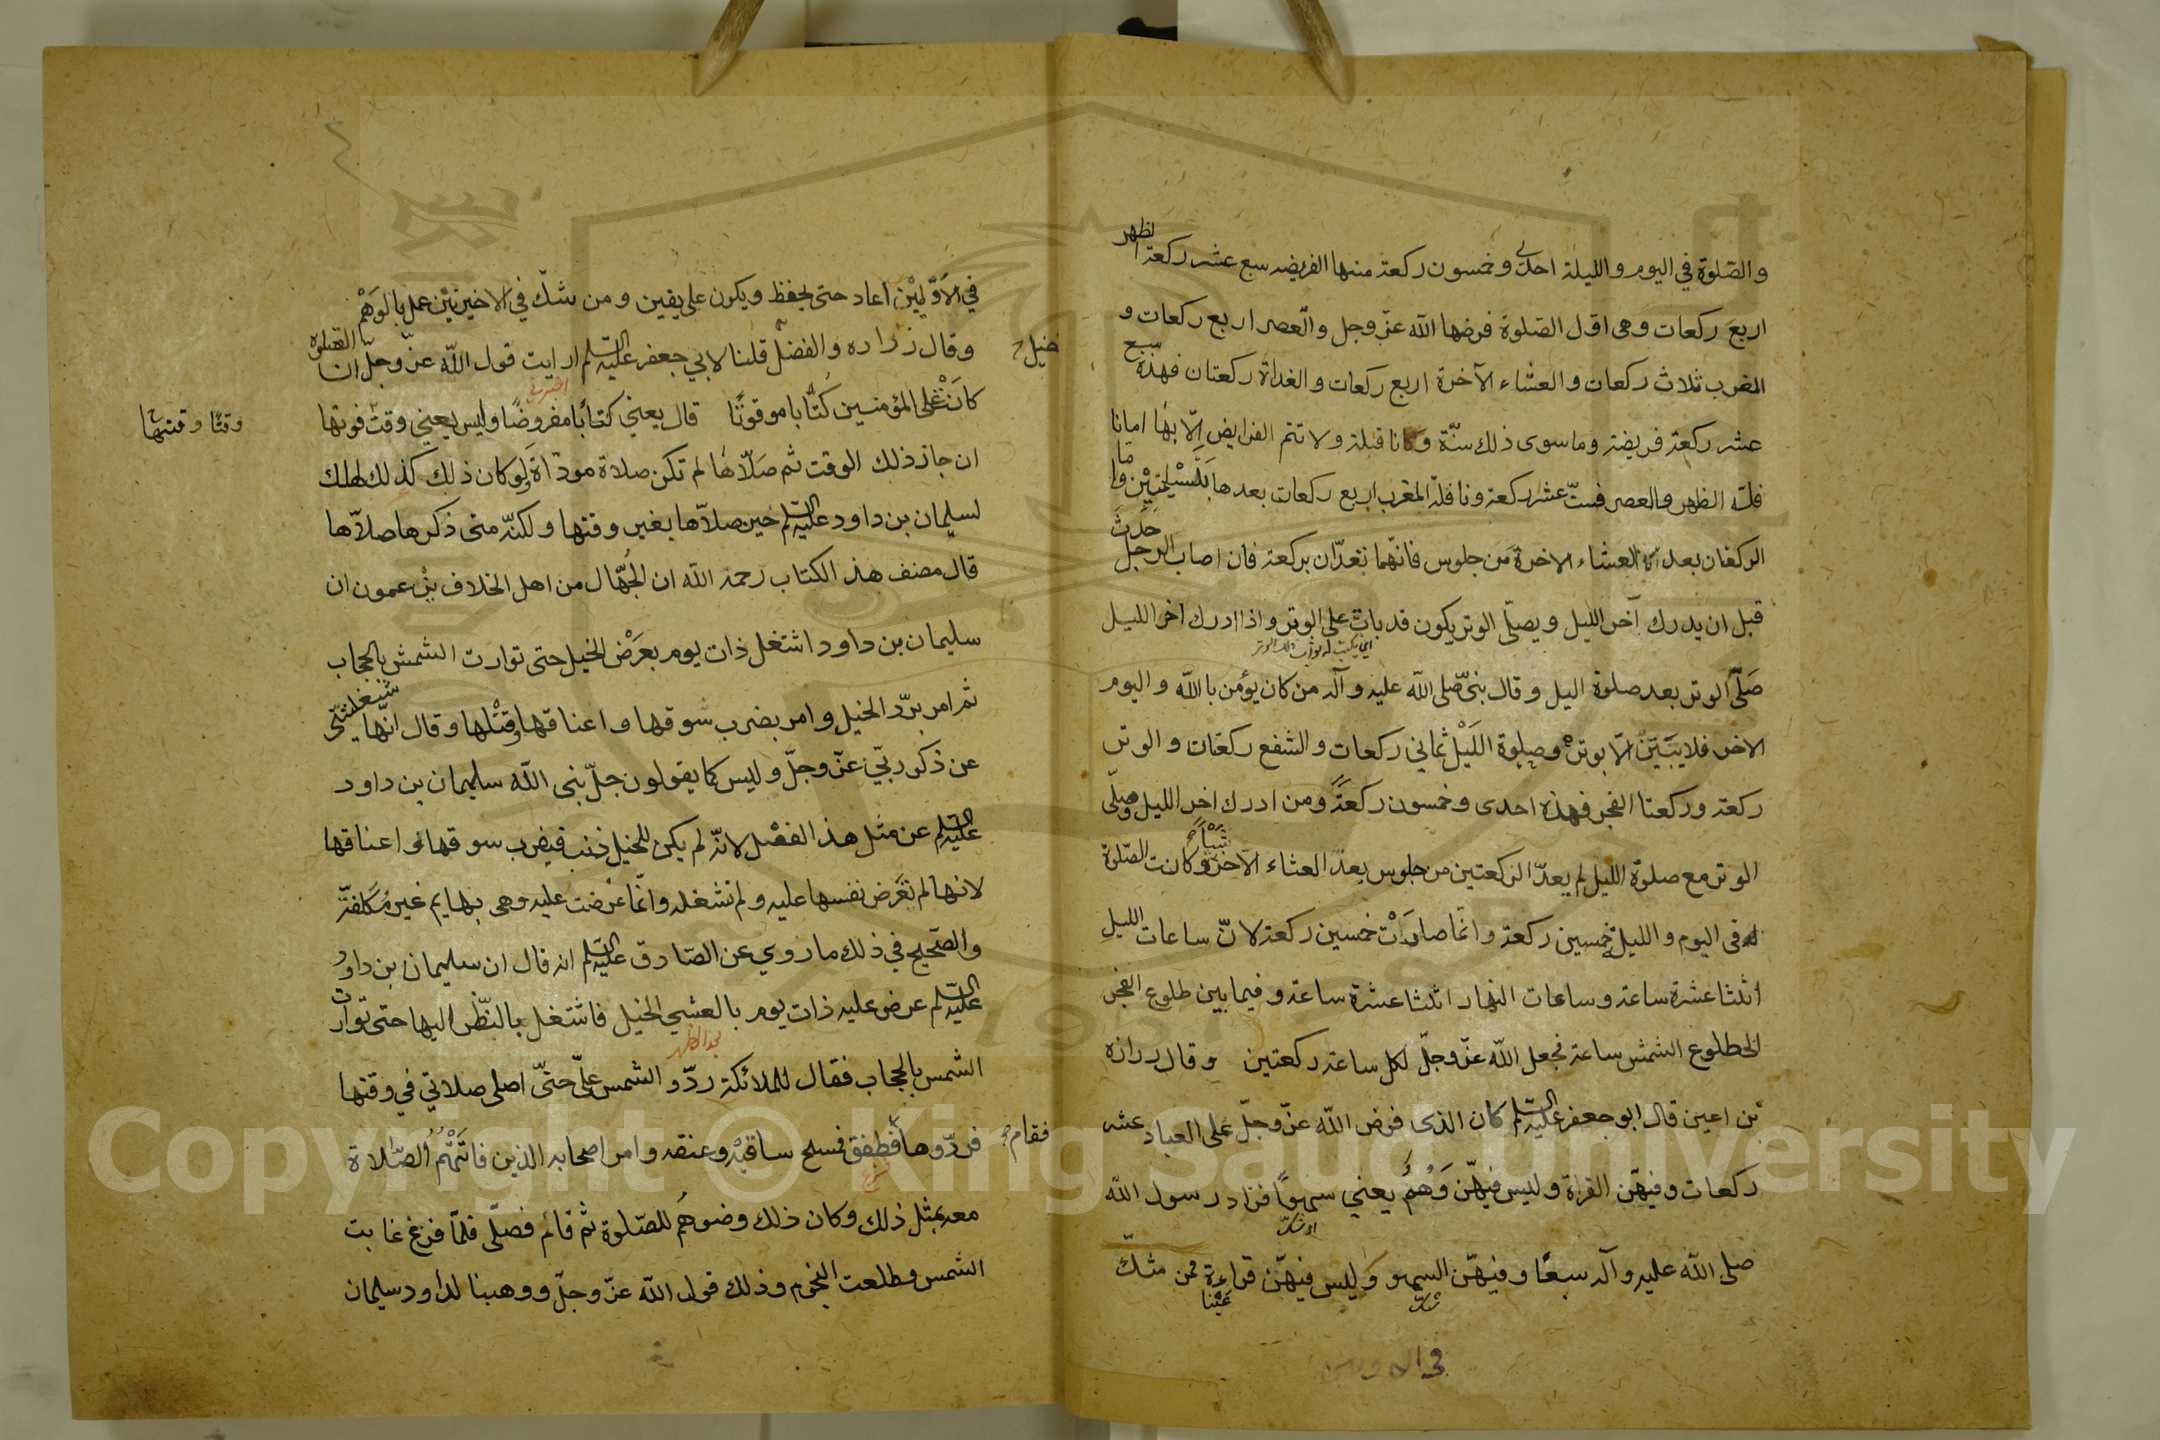 والصلوة في اليوم والليلة احدى وخمسون ركعة منها الفريضه سبع عشر ركعة الظهر
اربع ركعات وهى اول الصلوة فرضها الله عز وجل والعصر اربع ركعات و
المغرب ثلاث ركعات والعشاء الآخرة اربع ركعات والغداة ركعتان فهذه سبع
عشر ركعة فريضة وما سوى ذلك سنة ولا تتم الفرايض الا بها اما نا
فلة الظهر والعصر فست عشر ركعة ونافلة المغرب اربع ركعات بعدها بتسليمتين واما
الركعتان بعد العشاء الاخرة من جلوس فانهما تعدان بركعة فان اصاب الرجل حدث
قبل ان يدرك آخر الليل ويصلى الوتر يكون قد بات على الوتر واذا ادرك اخر الليل
صلى الوتر بعد صلوة اليل وقال نبى صلى الله عليه وآله من كان يؤمن بالله واليوم
الاخر فلا يبيتن الا بوتر وصلوة الليل ثماني ركعات والشفع ركعتان والوتر
ركعة وركعتا الفجر فهذه احدى وخمسون ركعة ومن ادرك اخر الليل وصلى
الوتر مع صلوة الليل لم يعد الركعتين من جلوس بعد العشاء الآخرة شيأ وكانت الصلوة
له فى اليوم والليلة خمسين ركعة وانما صارت خمسين ركعة لان ساعات الليل
اثنتا عشرة ساعة وساعات النهار اثنتا عشرة ساعة وفيما بين طلوع الفجر
الى طلوع الشمس ساعة فجعل الله عز وجل لكل ساعة ركعتين وقال زرازه
بن اعين قال ابو جعفر عليه السلم كان الذى فرض الله عز وجل على العباد عشر
ركعات وفيهن القراة وليس فيهن وهم يعني سهوا فزاد رسول الله
او شك
صلى الله عليه وآله سبعا وفيهن السهو وليس فيهن قراءة فمن شك
شك
في الاولين
في الاوليين اعاد حتى يحفظ ويكون على يقين ومن شك في الاخيرتين عمل بالوهم
وقال زراره والفضل قلنا لابي جعفر عليه السلم ارايت قول الله عز وجل ان الصلوة
كانت على المؤمنين كتابا موقوتا قال يعني كتابا مفروضا وليس يعني وقت فوتها
وقتا وقتها
ان جاز ذلك الوقت ثم صلاها لم تكن صلاة موداة ولو كان ذلك كذلك لهلك
لسليمان بن داود عليه السلم حين صلاها بغير وقتها ولكنه متى ذكرها صلاها
قال مصنف هذ الكتاب رحمة الله ان الجهال من اهل الخلاف يزعمون ان
سليمان بن داود اشتغل ذات يوم بعرض الخيل حتى توارت الشمش بالحجاب
ثم امر برد الخيل وامر بضرب سوقها واعناقها وقتلها وقال انها شغلتنى
عن ذكر ربي عز وجل وليس كما يقولون جل نبى الله سليمان بن داود
عليه السلم عن مثل هذ الفعل لانه لم يكن للخيل ذنب فيضرب سوقها واعناقها
لانها لم تعرض نفسها عليه ولم تشغله وانما عرضت عليه وهى بهايم غير مكلفة
والصحيح في ذلك ما روي عن الصادق عليه السلم انه قال ان سليمان بن داود
عليه السلم عرض عليه ذات يوم بالعشي الخيل فاشتغل بالنظر اليها حتى توارت
الشمس بالحجاب فقال للملائكة ردو الشمس على حتى اصلى صلاتي في وقتها
فردوها فطفق فمسح ساقيه وعنقه وامر اصحابه الذين فاتتهم الصلاة
فقام
معه بمثل ذلك وكان ذلك وضوهم للصلوة ثم قائم فصلى فلما فرغ غابت
الشمس وطلعت النجوم وذلك قول الله عز وجل ووهبنا لداود سليمان
Copyright © King Saud University